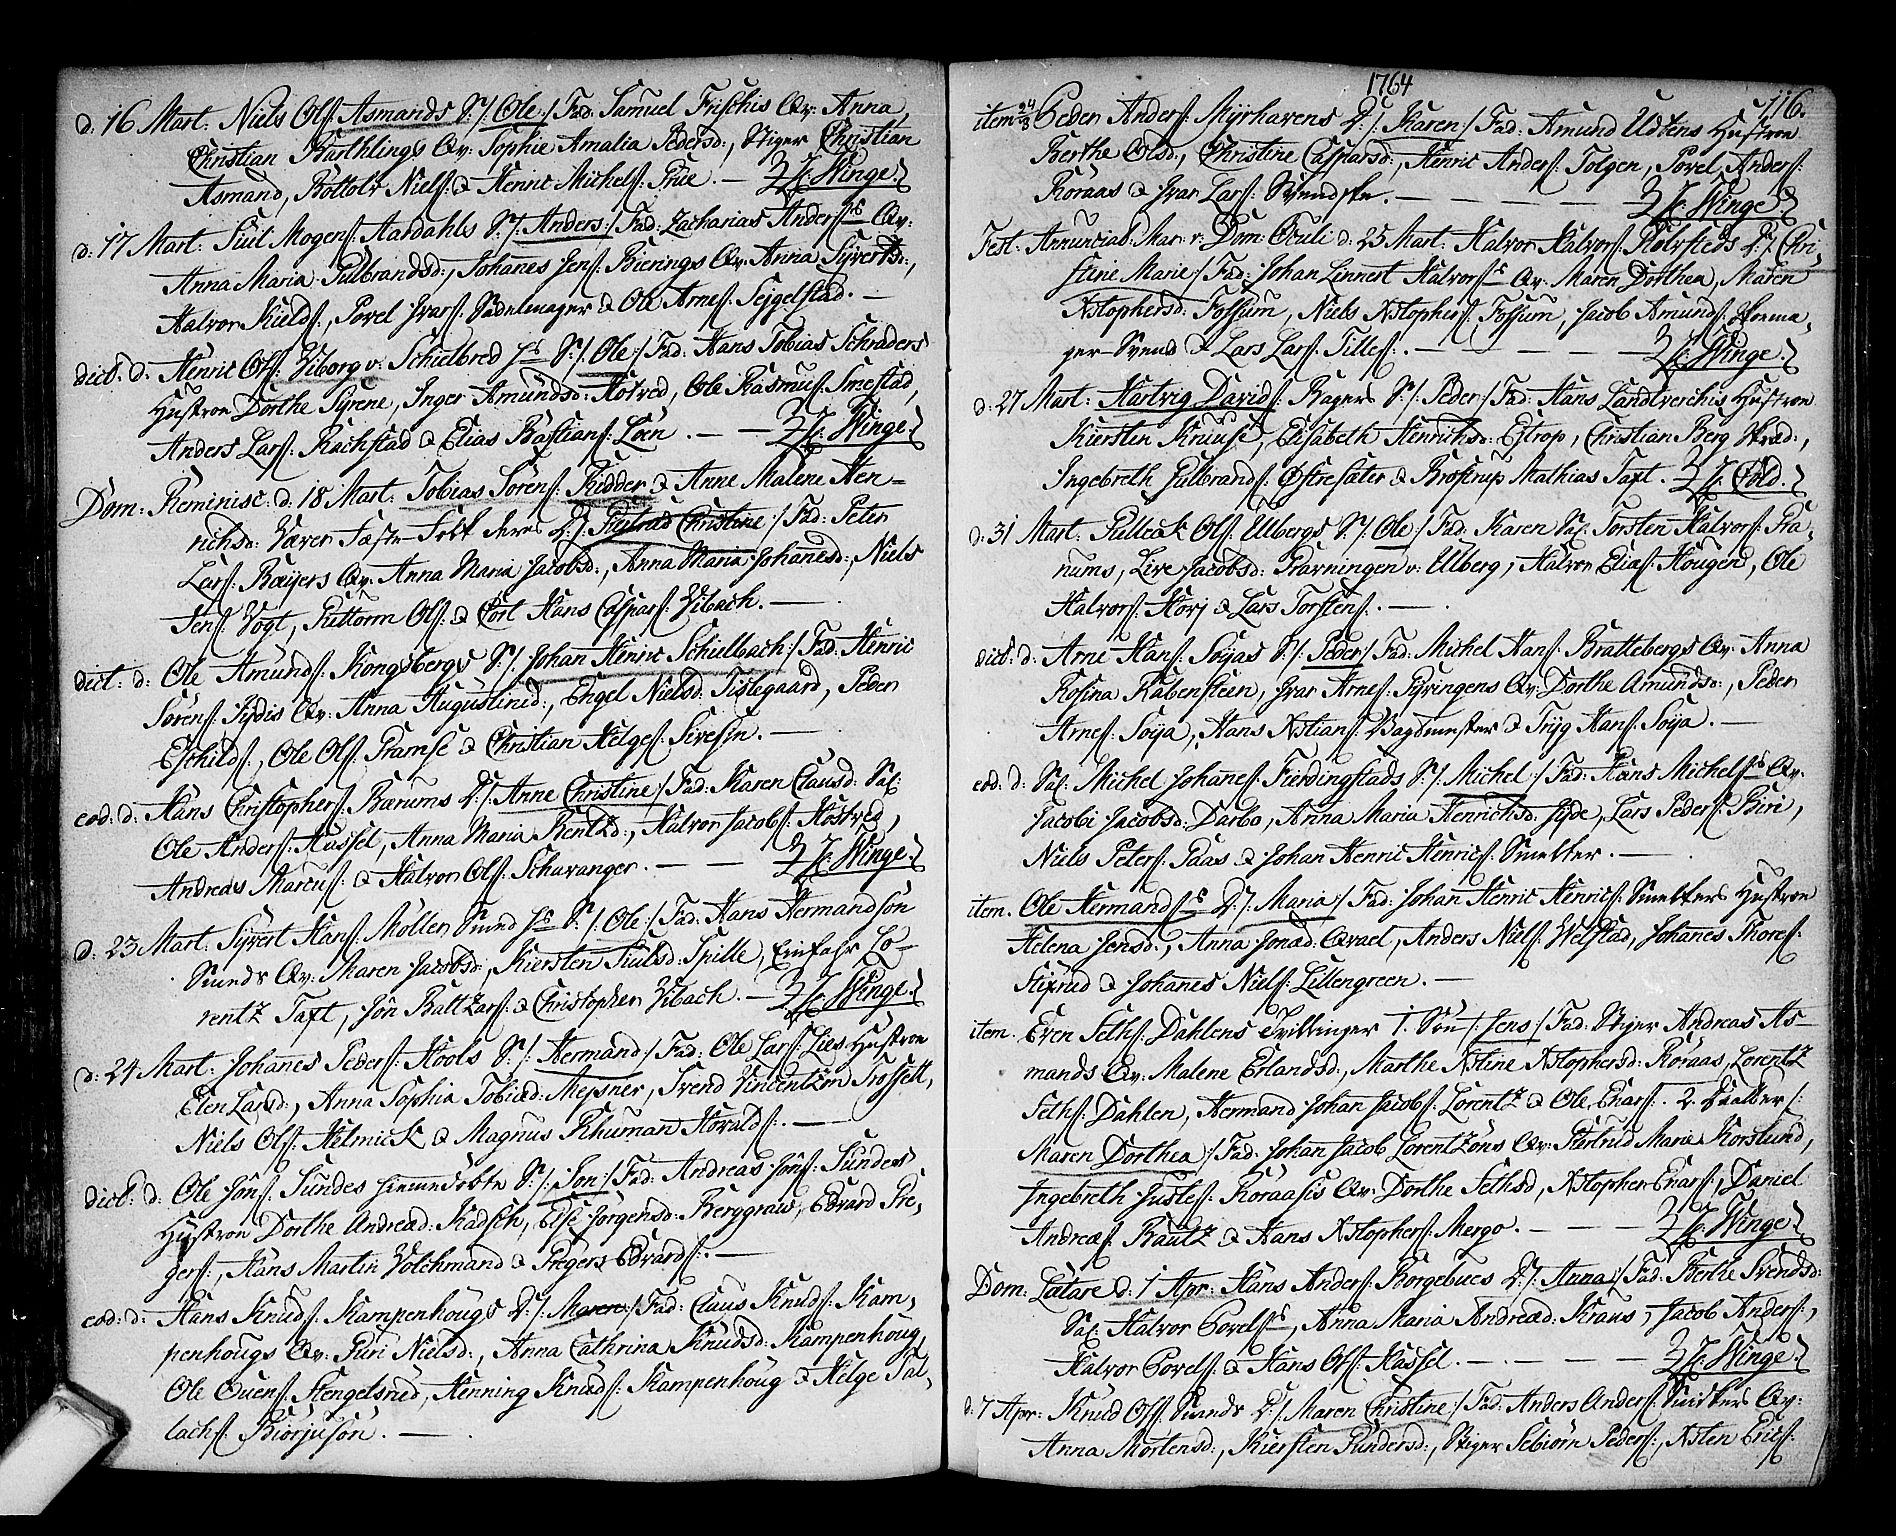 d: 16 Mart: Niels Olſ: Asmands S:/: Ole :/ Fad: Samuel Friſchis Qv: Anna,
Christian Barthlings Qv: Sophie Amalia Pedersd:, Stiger Christian
Asmand, Bottolv Nielſ: & Henric Michelſ: Prüe. — Winge.
d: 17 Mart: Siul Mogenſ: Aardahls S:/: Anders :/ Fad: Zacharias Anderſ: Qv:
Anna Maria Gulbrandsd:, Johanes Jenſ: Bierings Qv: Anna Syvertsd:,
Halvor Kieldſ:, Povel Ivarſ: Sadelmager & Ole Arneſ: Tejgelstad. —
dict: d: Henric Olſ: Viborg v. Schielbred S:/: Ole :/ Fad: Hans Tobias Schraders
Hustroe Dorthe Syrene, Inger Amundsd: Hotved, Ole Rasmuſ: Smestad,
Anders Larſ: Rachstad & Elias Bastianſ: Loen. — Winge.
Dom: Reminisc: d: 18 Mart: Tobias Sörenſ: Kidder & Anne Malene Hen-
richsd: Væver Fæste-Folk deres D:/: Christine :/ Fad: Peter
Larſ: Bæÿers Qv: Anna Maria Jacobsd:, Anna Maria Johanesd:, Niels
Jenſ: Vogt, Guttorm Olſ: & Cort Hans Caſparſ: Vibach. —
dict: d: Ole Amundſ: Kongsbergs S:/: Johan Henric Schielbach :/ Fad: Henric
Sörenſ: Sydis Qv: Anna Augustinid:, Engel Nielsd: Tislegaard, Peder
Eſchildſ:, Ole Olſ: Gramſe & Christian Helgeſ: Sireſin. —
eod: d: Hans Christopherſ: Bærums D:/: Anne Christine :/ Fad: Karen Clausd: Sal:
Ole Anderſ: Haſsel, Anna Maria Bentzd:, Halvor Jacobſ: Hostved,
Andreas Marcuſ: & Halvor Olſ: Schavanger. — — Winge.
d: 23 Mart: Syvert Hanſ: Möller Svend S:/: Ole :/ Fad: Hans Hermandsön
Smeds Qv: Maren Jacobsd:, Kiersten Siulsd: Spille, Einfahr Lo-
rentz Taft, Jön Baltzarſ: & Christopher Vibach. — Winge.
d: 24 Mart: Johanes Pederſ: Hools S:/: Hermand :/ Fad: Ole Larſ: Lies Hustroe
Elen Larsd:, Anna Sophia Tobiæd: Meſsner, Svend Vincentzön Trosſett,
Niels Olſ: Helmick & Magnus Khuman Horaldſ: —
dict: d: Ole Jönſ: Sundes S:/: Jon :/ Fad: Andreas Jönſ: Sundes
Hustroe Dorthe Andread: Kadsch, Elſe Jörgensd: Berggraw, Edvard Pre-
gerſ:, Hans Martin Volchmand & Pregers Edvardſ: —
eod: d: Hans Knudſ: Kampenhougs D:/: Maren :/ Fad: Claus Knudſ: Kam-
penhougs Qv: Guri Nielsd:, Anna Cathrina Knudsd: Kampenhoug,
Ole Ouenſ: Stengelsrud, Henning Knudſ: Kampenhoug & Helge Tal-
lachſ: Biörjusön. —
1764
116.
item 24/3 Peder Anderſ: Myrhavens D:/: Karen :/ Fad: Amund Udtens Hustroe
Berthe Olsd:, Christine Caſparsd:, Henric Anderſ: Tolgen, Povel Anderſ:
Röraas & Ivar Larſ: Svendſke. — — — — Winge.
Fest: Annunciat: Mar: v: Dom: Oculi d: 25 Mart: Halvor Halvorſ: Rolvsſeds D:/: Chri-
stine Marie :/ Fad: Johan Linnert Halvorſ: Qv: Maren Dorthea, Maren
Xstophersd: Foſsum, Niels Xstopherſ: Foſsum, Jacob Amundſ: Skoma-
ger-Svend & Lars Larſ: Tilleſ: — — — — Winge.
d: 27 Mart: Hartvig Davidſ: Bagers S:/: Peder :/ Fad: Hans Landtverchis Hustroe
Kiersten Kruuſe, Eliſabeth Henrichsd: Estrop, Christian Berg Stud:,
Ingebreth Gulbrandſ: Østreſæter & Brostrup Mathias Taft. Cold.
d: 31 Mart: Gulleik Olſ: Ulbergs S:/: Ole :/ Fad: Karen Sal: Torsten Halvorſ: Gra-
nums, Live Jacobsd: Gravningen v: Ulberg, Halvor Eliaſ: Hougen, Ole
Halvorſ: Horj & Lars Torstenſ: —
dict: d: Arne Hanſ: Soyas S:/: Peder :/ Fad: Michel Hanſ: Brattebergs Qv: Anna
Roſina Rabensteen, Ivar Arneſ: Gyvingens Qv: Dorthe Amundsd:, Peder
Arneſ: Soÿa, Hans Xstianſ: Bagdmester & Tryg Hanſ: Soÿa. —
eod: d: Sal: Michel Johaneſ: Fierdingstads S:/: Michel :/ Fad: Hans Michelſ: Qv:
Jacobi Jacobsd: Darbo, Anna Maria Henrichsd: Hyde, Lars Pederſ: Buri,
Niels Peterſ: Paas & Johan Henric Henricſ: Smelter. —
item. Ole Hermandſ: D:/: Maria :/ Fad: Johan Henric Henricſ: Smelters Hustroe
Helena Jensd:, Anna Jonæd: Qvael, Anders Nielſ: Welstad, Johanes Thoreſ:
Stifrud & Johanes Nielſ: Lillengreen. —
item. Even Sethſ: Dahlens Tvillinger 1. Sön /: Jens :/ Fad: Stiger Andreas As-
mands Qv: Malene Erlandsd:, Marthe Xstine Xstophersd: Röraas, Lorentz
Sethſ: Dahlen, Hermand Johan Jacobſ: Lorentz & Ole Enarſ: 2. Datter /:
Maren Dorthea :/ Fad: Johan Jacob Lorentzöns Qv: Gurtrud Marie Korslund,
Ingebreth Justeſ: Röraasis Qv: Dorthe Sethsd, Xstopher Enarſ:, Daniel
Andreæſ: Bautz & Hans Xstopherſ: Mergo. — — — Winge.
Dom: Lætare d: 1 Apr: Hans Anderſ: Borgebues D:/: Anna :/ Fad: Berthe Svendsd:
Sal: Halvor Povelſ:, Anna Maria Andreæd: Kraus, Jacob Anderſ:,
Halvor Povelſ: & Hans Olſ: Haſsel. — — — — Winge.
d: 7 Apr: Knud Olſ: Smeds D:/: Maren Christine :/ Fad: Anders Anderſ: Snidkers Qv:
Anna Mortensd:, Kiersten Gundersd:, Stiger Sebiörn Pederſ:, Xsten Ericſ: